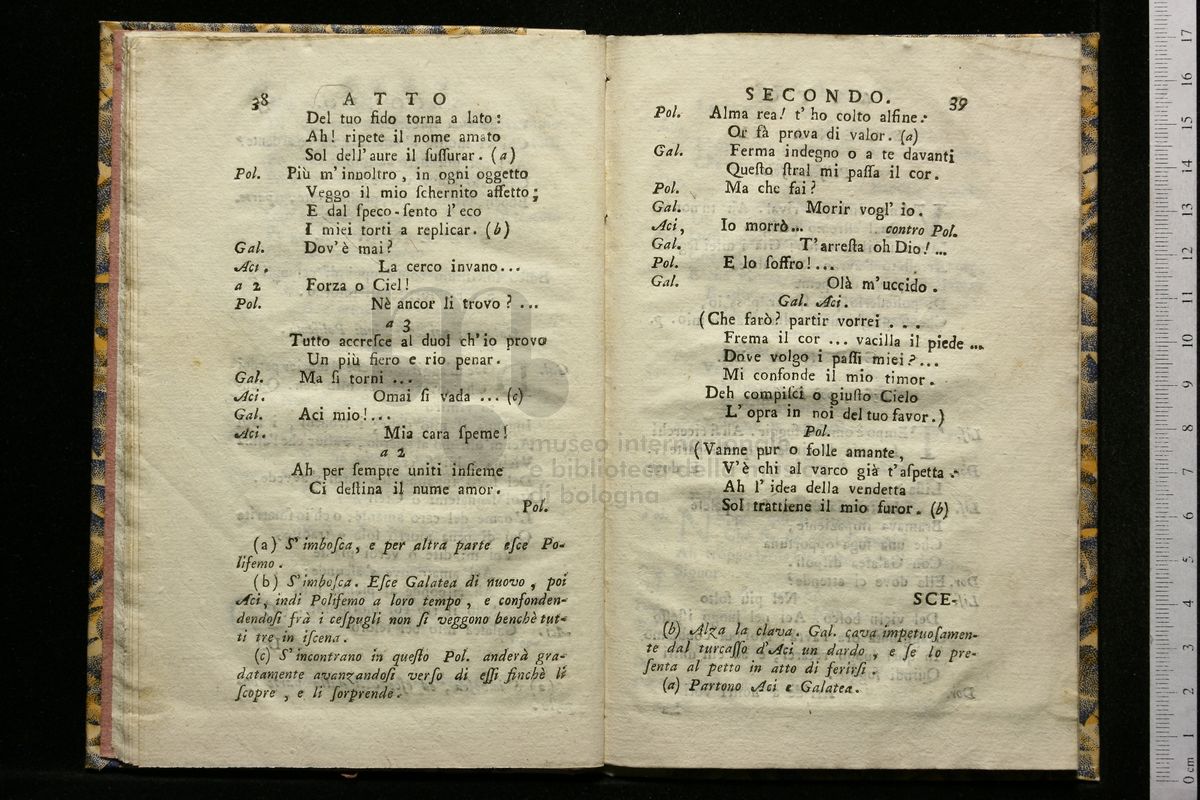 38 ATTO
Del tuo fido torna a lato:
Ah! ripete il nome amato
Sol dell'aure il ſuſſurar. (a)
Pol. Più m'innoltro, in ogni oggetto
Veggo il mio ſchernito affetto;
E dal ſpeco ſento l'eco
I miei torti a replicar. (b)
Gal. Dov'è mai?
Aci. La cerco invano...
a 2 Forza o Ciel!
Pol. Nè ancor li trovo? ...
a 3
Tutto accreſce al duol ch'io provo
Un più fiero e rio penar.
Gal. Ma ſi torni ...
Aci. Omai ſi vada ... (c)
Gal. Aci mio!...
Aci. Mia cara ſpeme!
a 2
Ah per ſempre uniti inſieme
Ci deſtina il nume amor.
Pol.
(a) S'imboſca, e per altra parte eſce Po-
lifemo.
(b) S'imboſca. Eſce Galatea di nuovo, poi
Aci, indi Polifemo a loro tempo, e confonden-
dendoſi frà i ceſpugli non ſi veggono benchè tut-
ti tre in iſcena.
(c) S'incontrano in queſto Pol. anderà gra-
datamente avanzandoſi verſo di eſſi finchè li
ſcopre, e li ſorprende.
SECONDO. 39
Pol. Alma rea! t'ho colto alfine:
Or fà prova di valor. (a)
Gal. Ferma indegno o a te davanti
Queſto ſtral mi paſſa il cor.
Pol. Ma che fai?
Gal. Morir vogl'io.
Aci, Io morrò... contro Pol.
Gal. T'arreſta oh Dio! ...
Pol. E lo ſoffro!...
Gal. Olà m'uccido.
Gal. Aci.
(Che farò? partir vorrei ...
Frema il cor ... vacilla il piede ...
Dove volgo i paſſi miei?...
Mi confonde il mio timor.
Deh compiſci o giuſto Cielo
L'opra in noi del tuo favor.)
Pol.
(Vanne pur o folle amante,
V'è chi al varco già t'aſpetta:
Ah l'idea della vendetta
Sol trattiene il mio furor. (b)
SCE-
(b) Alza la clava. Gal. cava impetuoſamen-
te dal turcaſſo d'Aci un dardo, e ſe lo pre-
ſenta al petto in atto di ferirſi
(a) Partono Aci e Galatea.
museo internazionale
e biblioteca della musica
di bologna
0 cm 1 2 3 4 5 6 7 8 9 10 11 12 13 14 15 16 17